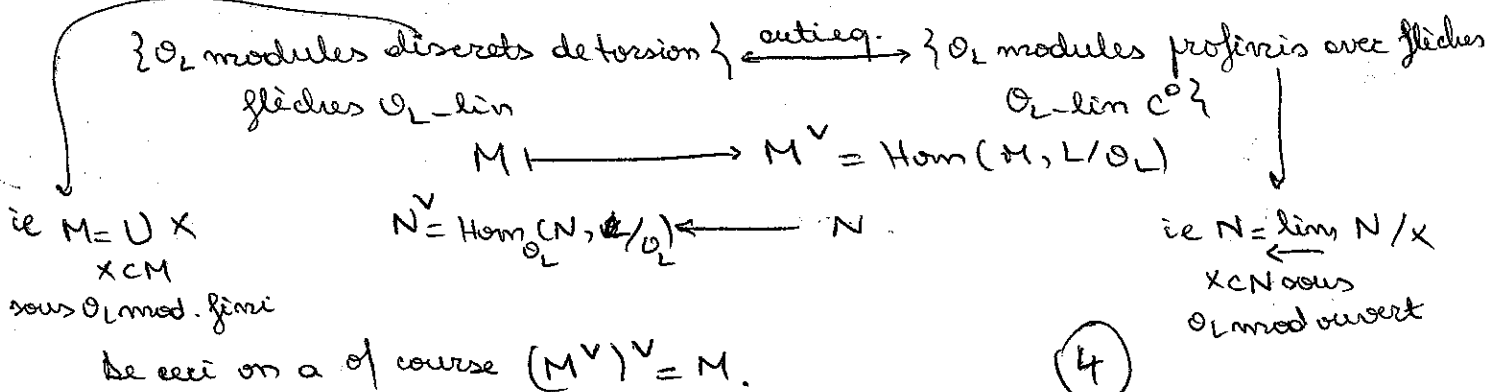 {O_L modules discrets de torsion} ⟷ antieq. {O_L modules profinis avec flèches
flèches O_L-lin O_L-lin C⁰}
M ⟼ M^∨ = Hom(M, L/O_L)
ie M = ∪ X N^∨ = Hom_{O_L}(N, L/O_L) ⟵ N. ie N = lim N/X
X⊂M ⟵
sous O_L mod. fini X⊂N sous
O_L mod ouvert
De ceci on a of course (M^∨)^∨ = M. 4